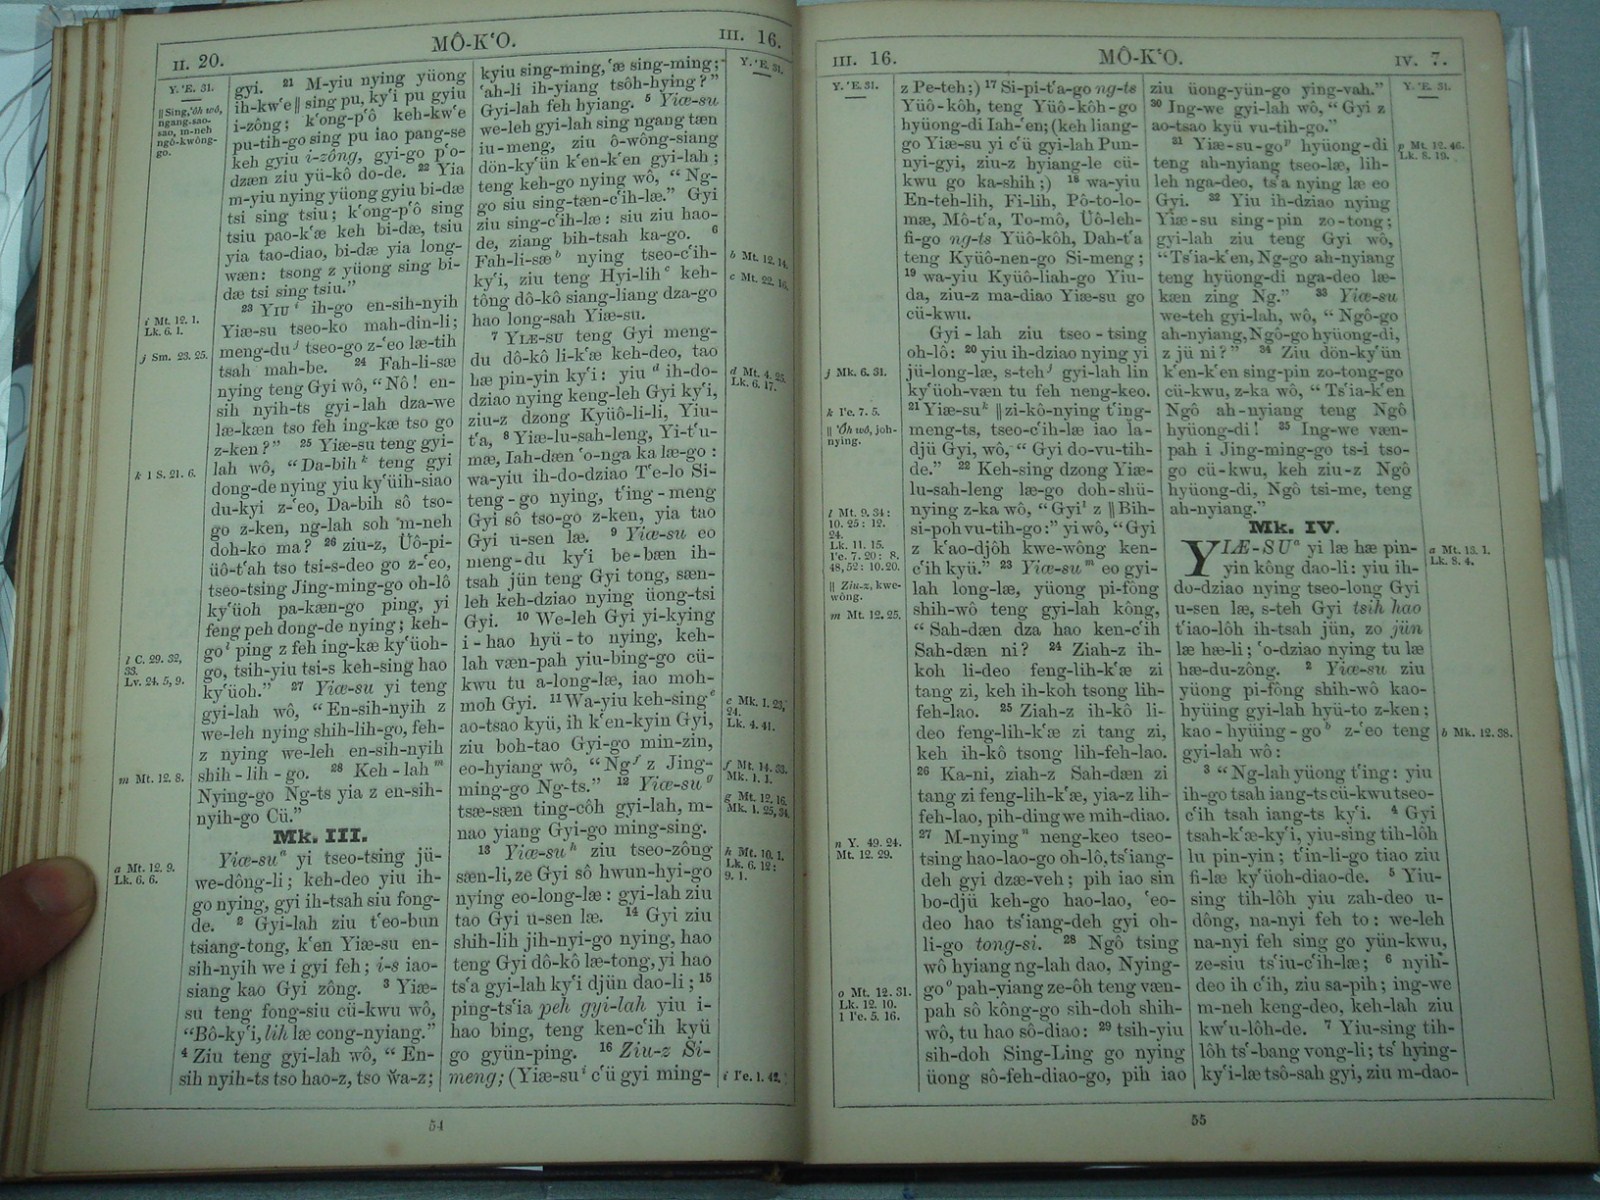 II. 20.
MÔ-KʻO.
III. 16.
Y. ʻE. 31.
‖ Sing, ʻôh wô,
ngang-sao-
sao, m-neh
ngô-kwông-
go.
i Mt. 12. 1.
Lk. 6. 1.
j Sm. 23. 25.
k 1 S. 21. 6.
l C. 29. 32,
33.
Lv. 24. 5, 9.
m Mt. 12. 8.
a Mt. 12. 9.
Lk. 6. 6.
gyi. 21 M-yiu nying yüong
ih-kwʻe ‖ sing pu, kyʻi pu gyiu
i-zông; kʻong-pʻô keh-kwʻe
pu-tih-go sing pu iao pang-se
keh gyiu i-zông, gyi-go pʻo-
dzæn ziu yü-kô do-de. 22 Yia
m-yiu nying yüong gyiu bi-dæ
tsi sing tsiu; kʻong-pʻô sing
tsiu pao-kʻæ keh bi-dæ, tsiu
yia tao-diao, bi-dæ yia long-
wæn: tsong z yüong sing bi-
dæ tsi sing tsiu.”
23 YIU i ih-go en-sih-nyih
Yiæ-su tseo-ko mah-din-li;
meng-du j tseo-go z-ʻeo læ-tih
tsah mah-be. 24 Fah-li-sæ
nying teng Gyi wô, “Nô! en-
sih nyih-ts gyi-lah dza-we
læ-kæn tso feh ing-kæ tso go
z-ken?” 25 Yiæ-su teng gyi-
lah wô, “Da-bih k teng gyi
dong-de nying yiu kyʻüih-siao
du-kyi z-ʻeo, Da-bih sô tso-
go z-ken, ng-lah soh m-neh
doh-ko ma? 26 ziu-z, Üô-pi-
üô-tʻah tso tsi-s-deo go z-ʻeo,
tseo-tsing Jing-ming-go oh-lô
kyʻüoh pa-kæn-go ping, yi
feng peh dong-de nying; keh-
go l ping z feh ing-kæ kyʻüoh-
go, tsih-yiu tsi-s keh-sing hao
kyʻüoh.” 27 Yiæ-su yi teng
gyi-lah wô, “En-sih-nyih z
we-leh nying shih-lih-go, feh-
z nying we-leh en-sih-nyih
shih-lih-go. 28 Keh-lah m
Nying-go Ng-ts yia z en-sih-
nyih-go Cü.”
Mk. III.
Yiæ-su a yi tseo-tsing jü-
we-dông-li; keh-deo yiu ih-
go nying, gyi ih-tsah siu fong-
de. 2 Gyi-lah ziu tʻeo-bun
tsiang-tong, kʻen Yiæ-su en-
sih-nyih we i gyi feh; i-s iao-
siang kao Gyi zông. 3 Yiæ-
su teng fong-siu cü-kwu wô,
“Bô-kyʻi, lih læ cong-nyiang.”
4 Ziu teng gyi-lah wô, “En-
sih nyih-ts tso hao-z, tso wa-z;
kyiu sing-ming, ʻæ sing-ming;
ʻah-li ih-yiang tsôh-hying?”
Gyi-lah feh hyiang. 5 Yiæ-su
we-leh gyi-lah sing ngang tæn
iu-meng, ziu ô-wông-siang
dön-kyʻün kʻen-kʻen gyi-lah;
teng keh-go nying wô, “Ng-
go siu sing-tæn-cʻih-læ.” Gyi
ziu sing-cʻih-læ: siu ziu hao-
de, ziang bih-tsah ka-go. 6
Fah-li-sæ b nying tseo-cʻih-
kyʻi, ziu teng Hyi-lih c keh-
tông dô-kô siang-liang dza-go
hao long-sah Yiæ-su.
7 YIÆ-SU teng Gyi meng-
du dô-kô li-kʻæ keh-deo, tao
hæ pin-yin kyʻi: yiu d ih-do-
dziao nying keng-leh Gyi kyʻi,
ziu-z dzong Kyüô-li-li, Yiu-
tʻa, 8 Yiæ-lu-sah-leng, Yi-tʻu-
mæ, Iah-dæn ʻo-nga ka læ-go:
wa-yiu ih-do-dziao Tʻe-lo Si-
teng-go nying, tʻing-meng
Gyi sô tso-go z-ken, yia tao
Gyi u-sen læ. 9 Yiæ-su eo
meng-du kyʻi be-bæn ih-
tsah jün teng Gyi tong, sæn-
leh keh-dziao nying üong-tsi
Gyi. 10 We-leh Gyi yi-kying
i-hao hyü-to nying, keh-
lah væn-pah yiu-bing-go cü-
kwu tu a-long-læ, iao moh-
moh Gyi. 11 Wa-yiu keh-sing e
ao-tsao kyü, ih kʻen-kyin Gyi,
ziu boh-tao Gyi-go min-zin,
eo-hyiang wô, “Ng f z Jing-
ming-go Ng-ts.” 12 Yiæ-su g
tsæ-sæn ting-côh gyi-lah, m-
nao yiang Gyi-go ming-sing.
13 Yiæ-su h ziu tseo-zông
sæn-li, ze Gyi sô hwun-hyi-go
nying eo-long-læ: gyi-lah ziu
tao Gyi u-sen læ. 14 Gyi ziu
shih-lih jih-nyi-go nying, hao
teng Gyi dô-kô læ-tong, yi hao
tsʻa gyi-lah kyʻi djün dao-li; 15
ping-tsʻia peh gyi-lah yiu i-
hao bing, teng ken-cʻih kyü
go gyün-ping. 16 Ziu-z Si-
meng; (Yiæ-su i cʻü gyi ming-
Y. ʻE. 31.
b Mt. 12. 14.
c Mt. 22. 16.
d Mt. 4. 25.
Lk. 6. 17.
e Mk. 1. 23,
24.
Lk. 4. 41.
f Mt. 14. 33.
Mk. 1. 1.
g Mt. 12. 16.
Mk. 1. 25, 34.
h Mt. 10. 1.
Lk. 6. 12:
9. 1.
i Iʻe. 1. 42.
54
III. 16.
MÔ-KʻO.
IV. 7.
Y. ʻE. 31.
j Mk. 6. 31.
k Iʻe. 7. 5.
‖ ʻÔh wô, joh-
nying.
l Mt. 9. 34:
10. 25: 12.
24.
Lk. 11. 15.
Iʻe. 7. 20: 8.
48, 52: 10. 20.
‖ Ziu-z, kwe-
wông.
m Mt. 12. 25.
n Y. 49. 24.
Mt. 12. 29.
o Mt. 12. 31.
Lk. 12. 10.
1 Iʻe. 5. 16.
z Pe-teh;) 17 Si-pi-tʻa-go ng-ts
Yüô-kôh, teng Yüô-kôh-go
hyüong-di Iah-ʻen; (keh liang-
go Yiæ-su yi cʻü gyi-lah Pun-
nyi-gyi, ziu-z hyiang-le cü-
kwu go ka-shih;) 18 wa-yiu
En-teh-lih, Fi-lih, Pô-to-lo-
mæ, Mô-tʻa, To-mô, Üô-leh-
fi-go ng-ts Yüô-kôh, Dah-tʻa
teng Kyüô-nen-go Si-meng;
19 wa-yiu Kyüô-liah-go Yiu-
da, ziu-z ma-diao Yiæ-su go
cü-kwu.
Gyi-lah ziu tseo-tsing
oh-lô: 20 yiu ih-dziao nying yi
jü-long-læ, s-teh j gyi-lah lin
kyʻüoh-væn tu feh neng-keo.
21 Yiæ-su k ‖ zi-kô-nying tʻing-
meng-ts, tseo-cʻih-læ iao la-
djü Gyi, wô, “Gyi do-vu-tih-
de.” 22 Keh-sing dzong Yiæ-
lu-sah-leng læ-go doh-shü-
nying z-ka wô, “Gyi l z ‖ Bih-
si-poh vu-tih-go:” yi wô, “Gyi
z kʻao-djôh kwe-wông ken-
cʻih kyü.” 23 Yiæ-su m eo gyi-
lah long-læ, yüong pi-fông
shih-wô teng gyi-lah kông,
“Sah-dæn dza hao ken-cʻih
Sah-dæn ni? 24 Ziah-z ih-
koh li-deo feng-lih-kʻæ zi
tang zi, keh ih-koh tsong lih-
feh-lao. 25 Ziah-z ih-kô li-
deo feng-lih-kʻæ zi tang zi,
keh ih-kô tsong lih-feh-lao.
26 Ka-ni, ziah-z Sah-dæn zi
tang zi feng-lih-kʻæ, yia-z lih-
feh-lao, pih-ding we mih-diao.
27 M-nying n neng-keo tseo-
tsing hao-lao-go oh-lô, tsʻiang-
deh gyi dzæ-veh; pih iao sin
bo-djü keh-go hao-lao, ʻeo-
deo hao tsʻiang-deh gyi oh-
li-go tong-si. 28 Ngô tsing
wô hyiang ng-lah dao, Nying-
go o pah-yiang ze-ôh teng væn-
pah sô kông-go sih-doh shih-
wô, tu hao sô-diao: 29 tsih-yiu
sih-doh Sing-Ling go nying
üong sô-feh-diao-go, pih iao
ziu üong-yün-go ying-vah.”
30 Ing-we gyi-lah wô, “Gyi z
ao-tsao kyü vu-tih-go.”
31 Yiæ-su-go p hyüong-di
teng ah-nyiang tseo-læ, lih-
leh nga-deo, tsʻa nying læ eo
Gyi. 32 Yiu ih-dziao nying
Yiæ-su sing-pin zo-tong;
gyi-lah ziu teng Gyi wô,
“Tsʻia-kʻen, Ng-go ah-nyiang
teng hyüong-di nga-deo læ-
kæn zing Ng.” 33 Yiæ-su
we-teh gyi-lah, wô, “Ngô-go
ah-nyiang, Ngô-go hyüong-di,
z jü ni?” 34 Ziu dön-kyʻün
kʻen-kʻen sing-pin zo-tong-go
cü-kwu, z-ka wô, “Tsʻia-kʻen
Ngô ah-nyiang teng Ngô
hyüong-di! 35 Ing-we væn-
pah i Jing-ming-go ts-i tso-
go cü-kwu, keh ziu-z Ngô
hyüong-di, Ngô tsi-me, teng
ah-nyiang.”
Mk. IV.
YIÆ-SU a yi læ hæ pin-
yin kông dao-li: yiu ih-
do-dziao nying tseo-long Gyi
u-sen læ, s-teh Gyi tsih hao
tʻiao-lôh ih-tsah jün, zo jün
læ hæ-li; ʻo-dziao nying tu læ
hæ-du-zông. 2 Yiæ-su ziu
yüong pi-fông shih-wô kao-
hyüing gyi-lah hyü-to z-ken;
kao-hyüing-go b z-ʻeo teng
gyi-lah wô:
3 “Ng-lah yüong tʻing: yiu
ih-go tsah iang-ts cü-kwu tseo-
cʻih tsah iang-ts kyʻi. 4 Gyi
tsah-kʻæ-kyʻi, yiu-sing tih-lôh
lu pin-yin; tʻin-li-go tiao ziu
fi-læ kyʻüoh-diao-de. 5 Yiu-
sing tih-lôh yiu zah-deo u-
dông, na-nyi feh to: we-leh
na-nyi feh sing go yün-kwu,
ze-siu tsʻiu-cʻih-læ; 6 nyih-
deo ih cʻih, ziu sa-pih; ing-we
m-neh keng-deo, keh-lah ziu
kwʻu-lôh-de. 7 Yiu-sing tih-
lôh tsʻ-bang vong-li; tsʻ hying-
kyʻi-læ tsô-sah gyi, ziu m-dao-
Y. ʻE. 31.
p Mt. 12. 46.
Lk. 8. 19.
a Mt. 13. 1.
Lk. 8. 4.
b Mk. 12. 38.
55